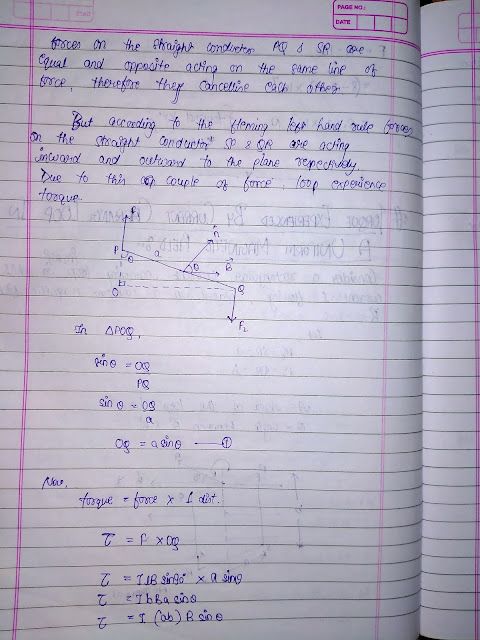 PAGE NO.:
DATE
forces on the straight conductor PQ & SR are
equal and opposite acting on the same line of
force, therefore they cancelline each other
But according to the fleming left hand rule forces
on the straight conductor SP & QR are acting
inward and outward to the plane respectively.
Due to this couple of force, loop experience
torque.
F₁
n̂
P
θ
a
θ
B⃗
O
Q
F₂
In △POQ,
sinθ = OQ
PQ
sinθ = OQ
a
OQ = a sinθ —— ①
Now,
torque = force × ⊥ dist.
τ = F × OQ
τ = IlB sin90° × a sinθ
τ = IbBa sinθ
τ = I (ab) B sinθ